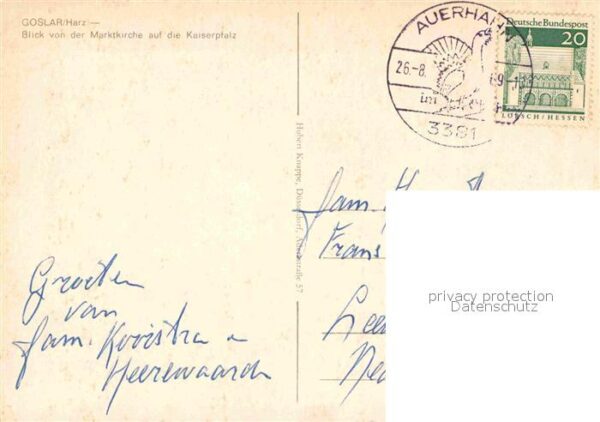 GOSLAR/Harz —
Blick von der Marktkirche auf die Kaiserpfalz
AUERHAHN
26.-8. 69-18
im
3381
Deutsche Bundespost
20
LORSCH/HESSEN
Hubert Knappe, Düsseldorf,
Groeten
van
fam. Kooistra
Heerewaarden
fam.
Frans
Lee
Ne
privacy protection
Datenschutz